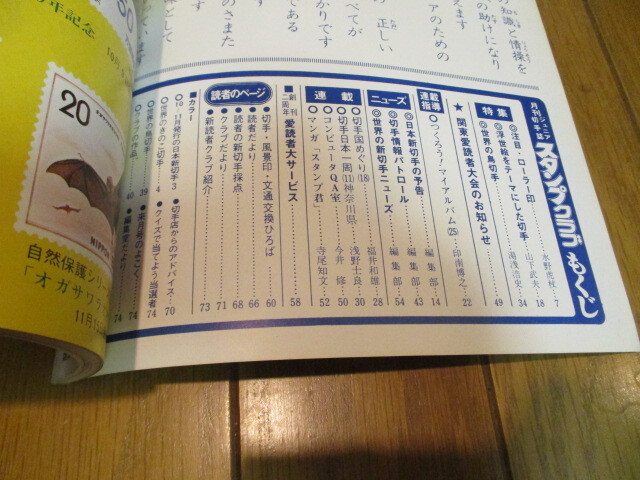 の知識と情操を
の助けになり
えます
アのための
正しい
べてが
かりです
である
す
のさまた
味として
います
年記念
20
NIPPON
自然保護シリ
「オガサワラ
月刊切手誌
ジュニア
スタンプクラブ もくじ
特集
◎注目・ローラー印 水野虎杖…7
◎浮世絵をテーマにした切手 山下武夫…18
◎世界の鳥切手 湯浅浩史…34
★関東愛読者大会のお知らせ 49
連載指導
◎つくろう！マイアルバム(25) 印南博之…22
ニューズ
◎日本新切手の予告 編集部…14
◎切手情報パトロール 編集部…43
◎世界の新切手ニューズ 編集部…54
連載
◎切手国めぐり(18) 福井和雄…28
◎切手日本一周(11)神奈川県 浅野士良…30
◎コンピュータQA室 今井修…50
◎マンガ“スタンプ君” 寺尾知文…52
■創刊二周年 愛読者大サービス 58
読者のページ
●切手・風景印・文通交換ひろば 60
●読者だより 66
●読者の新切手採点 68
●クラブだより 71
●新読者クラブ紹介 73
■カラー
◎10・11月発行の日本新切手 3
◎世界のきのこ切手 4
◎世界の鳥切手 39
40
●切手店からのアドバイス 70
●クイズで当てよう当選者 74
●来月号のよこく 74
●編集室だより 74